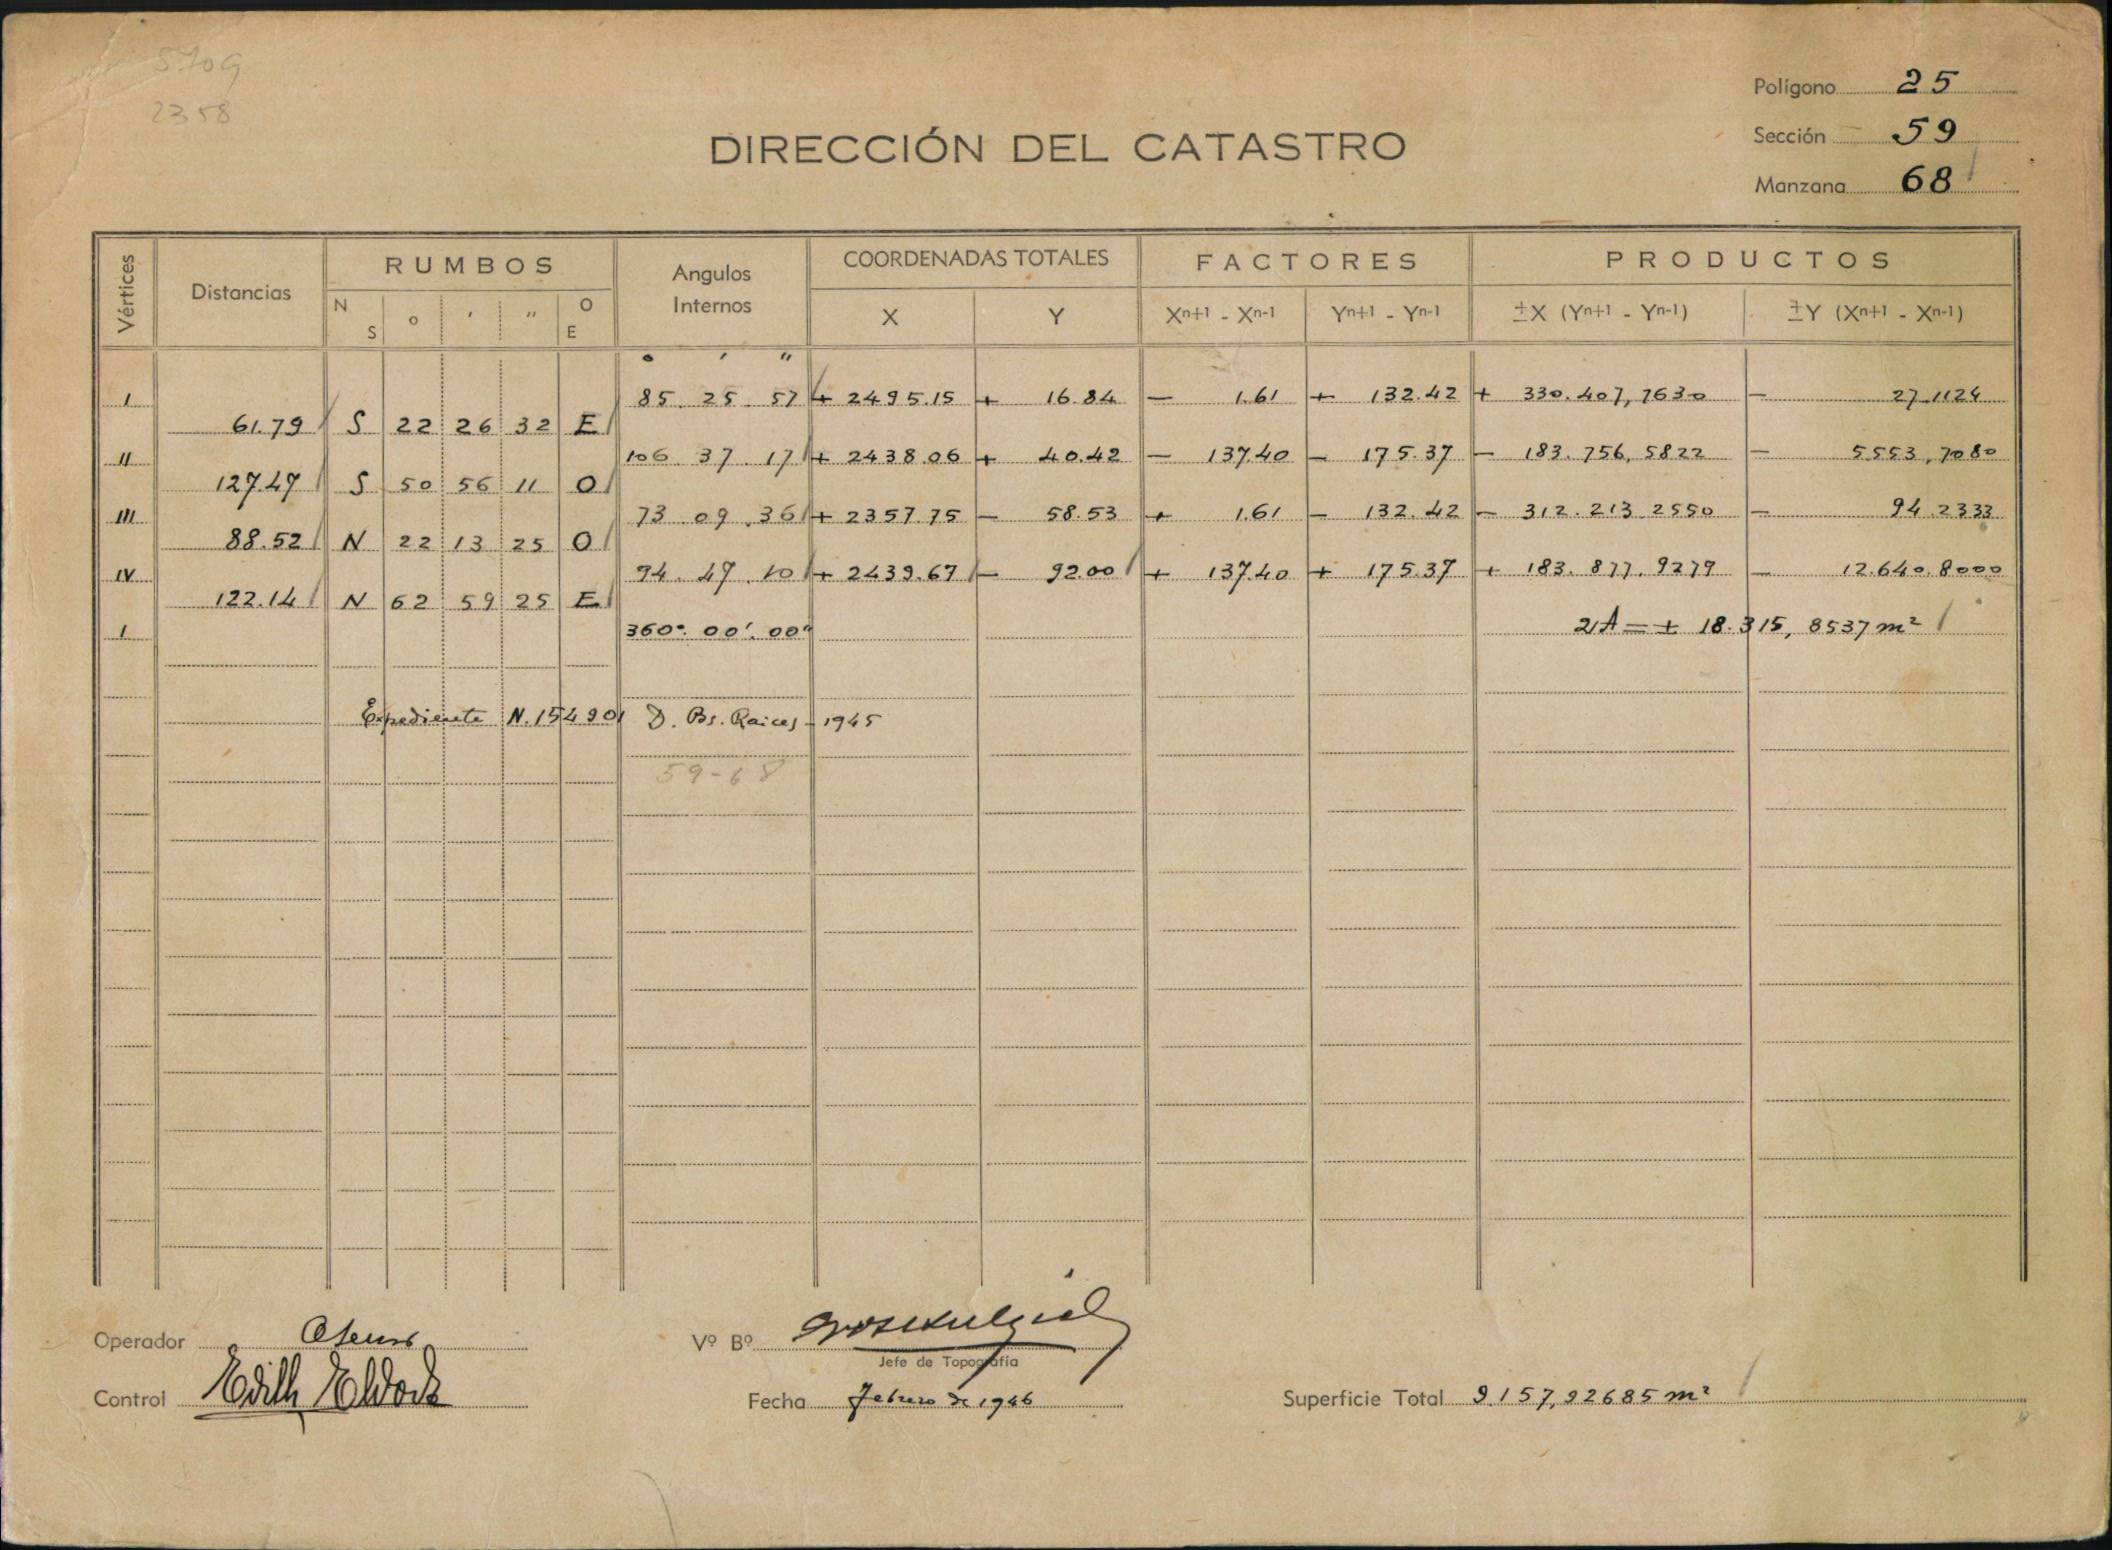 5709
2358
Polígono 25
Sección 59
Manzana 68
DIRECCIÓN DEL CATASTRO
Vértices Distancias RUMBOS Angulos Internos COORDENADAS TOTALES FACTORES PRODUCTOS
N S o ′ ″ O E X Y Xn+1 - Xn-1 Yn+1 - Yn-1 ±X (Yn+1 - Yn-1) ∓Y (Xn+1 - Xn-1)
° ′ ″
I 85. 25. 57 + 2495.15 + 16.84 — 1.61 + 132.42 + 330.407,7630 — 27.1124
61.79 S 22 26 32 E
II 106 37. 17 + 2438.06 + 40.42 — 137.40 — 175.37 — 183.756,5822 — 5553,7080
127.47 S 50 56 11 O
III 73 09.36 + 2357.75 — 58.53 + 1.61 — 132.42 — 312.213.2550 — 94.2333
88.52 N 22 13 25 O
IV 94. 47. 10 + 2439.67 — 92.00 + 137.40 + 175.37 + 183.877.9279 — 12.640.8000
122.14 N 62 59 25 E
I 360°. 00′. 00″ 2A = + 18.315, 8537 m²
Expediente N. 154901 D. Bs. Raices - 1945
59-68
Operador
Vº Bº
Jefe de Topografía
Control Edith
Fecha Febrero de 1946
Superficie Total 9.157,92685 m²